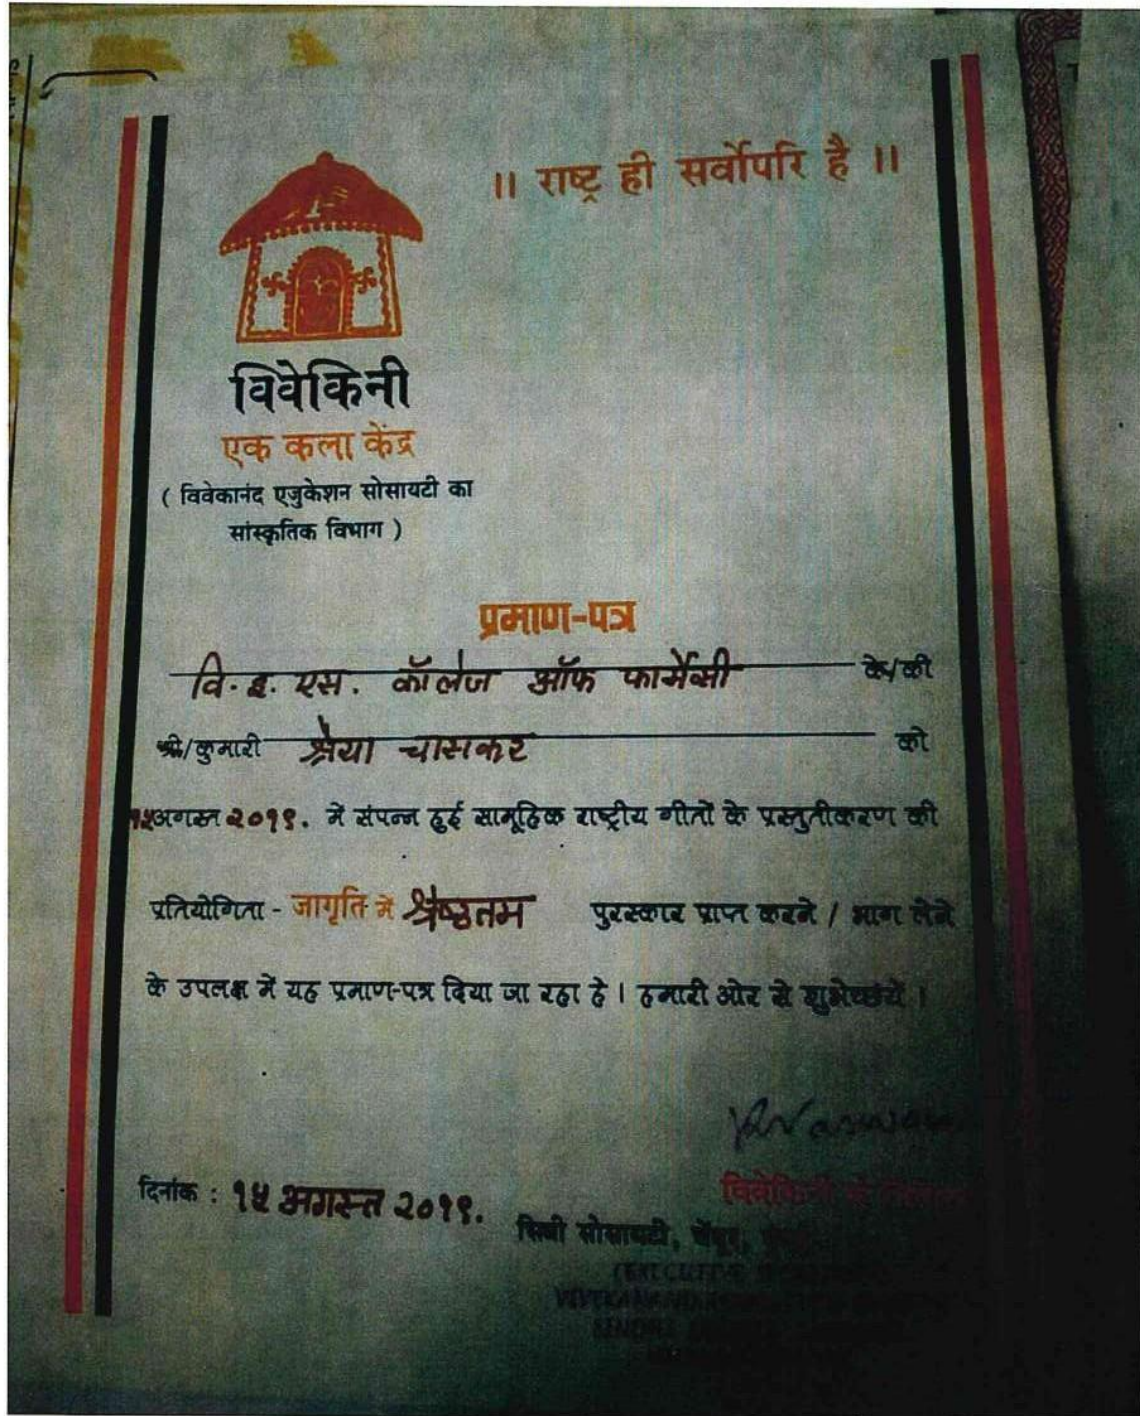 ॥ राष्ट्र ही सर्वोपरि है ॥
विवेकिनी
एक कला केंद्र
( विवेकानंद एजुकेशन सोसायटी का
सांस्कृतिक विभाग )
प्रमाण-पत्र
वि. इ. एस. कॉलेज ऑफ फार्मेसी के/की
श्री/कुमारी श्रेया चासकर को
१५अगस्त २०१९. में संपन्न हुई सामूहिक राष्ट्रीय गीतों के प्रस्तुतीकरण की
प्रतियोगिता - जागृति में श्रेष्ठतम पुरस्कार प्राप्त करने / भाग लेने
के उपलक्ष में यह प्रमाण-पत्र दिया जा रहा है । हमारी ओर से शुभेच्छायें ।
दिनांक : १५ अगस्त २०१९.
विवेकिनी
सिंधी सोसायटी, चेंबूर,
(EXECUTIVE